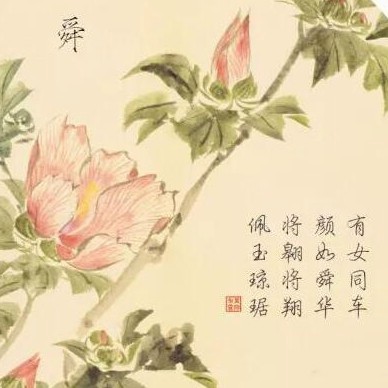 舜
有女同车
颜如舜华
将翱将翔
佩玉琼琚